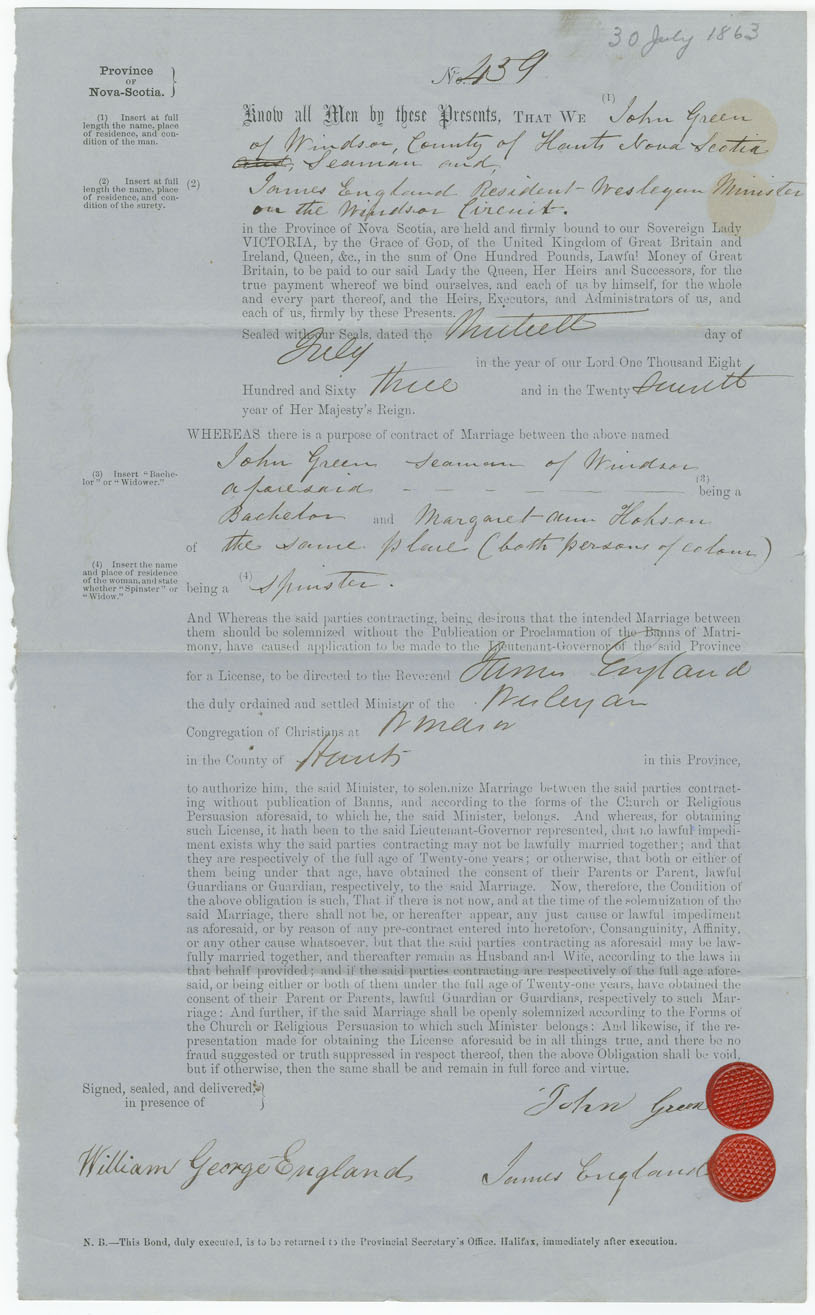 30 July 1863
Province
OF
Nova-Scotia.
No. 459
(1) Insert at full
length the name, place
of residence, and con-
dition of the man.
Know all Men by these Presents, THAT WE (1) John Green
of Windsor, County of Hants Nova Scotia
and, Seaman and,
(2) Insert at full
length the name, place
of residence, and con-
dition of the surety.
(2) James England Resident Wesleyan Minister
on the Windsor Circuit.
in the Province of Nova Scotia, are held and firmly bound to our Sovereign Lady
VICTORIA, by the Grace of GOD, of the United Kingdom of Great Britain and
Ireland, Queen, &c., in the sum of One Hundred Pounds, Lawful Money of Great
Britain, to be paid to our said Lady the Queen, Her Heirs and Successors, for the
true payment whereof we bind ourselves, and each of us by himself, for the whole
and every part thereof, and the Heirs, Executors, and Administrators of us, and
each of us, firmly by these Presents.
Sealed with our Seals, dated the Thirtieth day of
July in the year of our Lord One Thousand Eight
Hundred and Sixty three and in the Twenty Seventh
year of Her Majesty's Reign.
WHEREAS there is a purpose of contract of Marriage between the above named
John Green Seaman of Windsor
(3) Insert "Bache-
lor" or "Widower."
aforesaid - - - - (3) being a
Bachelor and Margaret Ann Hobson
of the same place (both persons of colour)
(4) Insert the name
and place of residence
of the woman, and state
whether "Spinster" or
"Widow."
being a (4) Spinster.
And Whereas the said parties contracting, being desirous that the intended Marriage between
them should be solemnized without the Publication or Proclamation of the Banns of Matri-
mony, have caused application to be made to the Lieutenant-Governor of the said Province
for a License, to be directed to the Reverend James England
the duly ordained and settled Minister of the Wesleyan
Congregation of Christians at Windsor
in the County of Hants in this Province,
to authorize him, the said Minister, to solemnize Marriage between the said parties contract-
ing without publication of Banns, and according to the forms of the Church or Religious
Persuasion aforesaid, to which he, the said Minister, belongs. And whereas, for obtaining
such License, it hath been to the said Lieutenant-Governor represented, that no lawful impedi-
ment exists why the said parties contracting may not be lawfully married together; and that
they are respectively of the full age of Twenty-one years; or otherwise, that both or either of
them being under that age, have obtained the consent of their Parents or Parent, lawful
Guardians or Guardian, respectively, to the said Marriage. Now, therefore, the Condition of
the above obligation is such, That if there is not now, and at the time of the solemnization of the
said Marriage, there shall not be, or hereafter appear, any just cause or lawful impediment
as aforesaid, or by reason of any pre-contract entered into heretofore, Consanguinity, Affinity,
or any other cause whatsoever, but that the said parties contracting as aforesaid may be law-
fully married together, and thereafter remain as Husband and Wife, according to the laws in
that behalf provided; and if the said parties contracting are respectively of the full age afore-
said, or being either or both of them under the full age of Twenty-one years, have obtained the
consent of their Parent or Parents, lawful Guardian or Guardians, respectively to such Mar-
riage: And further, if the said Marriage shall be openly solemnized according to the Forms of
the Church or Religious Persuasion to which such Minister belongs: And likewise, if the re-
presentation made for obtaining the License aforesaid be in all things true, and there be no
fraud suggested or truth suppressed in respect thereof, then the above Obligation shall be void,
but if otherwise, then the same shall be and remain in full force and virtue.
Signed, sealed, and delivered,
in presence of
John Green
William George England James England
N. B.—This Bond, duly executed, is to be returned to the Provincial Secretary's Office, Halifax, immediately after execution.